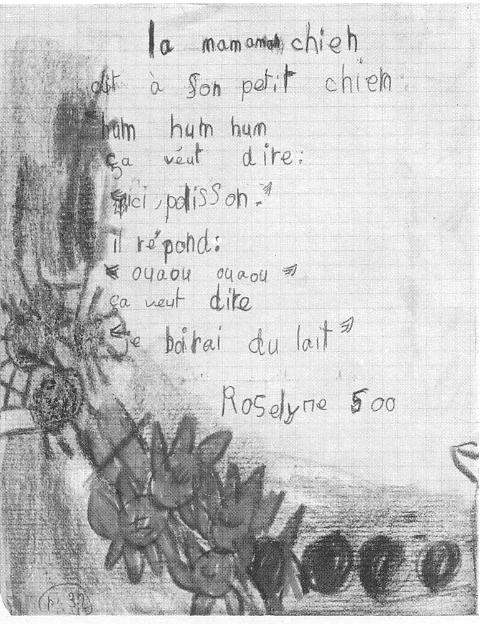 la maman chien
dit à son petit chien
hum hum hum
ça veut dire:
"ici, polisson."
il répond:
"ouaou ouaou"
ça veut dire
"je boirai du lait"
Roselyne 5 00